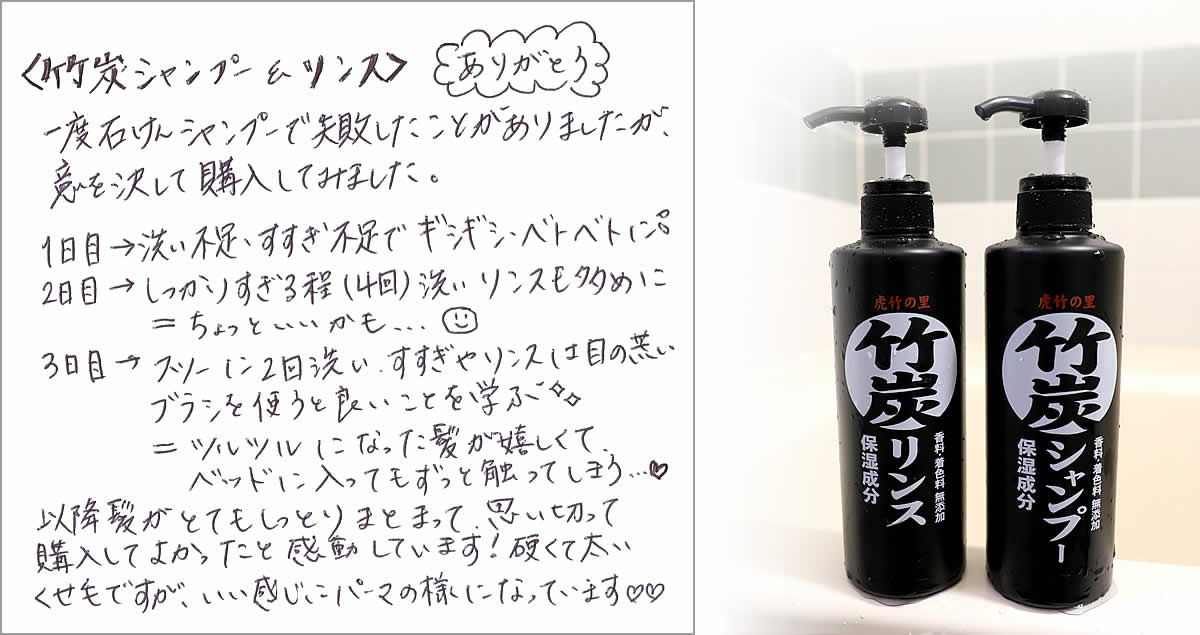 <竹炭シャンプー&リンス>
ありがとう
一度石けんシャンプーで失敗したことがありましたが、
意を決して購入してみました。
1日目→洗い不足、すすぎ不足でギシギシ・ベトベトに。
2日目→しっかりすぎる程(4回)洗いリンスも多めに
=ちょっといいかも…
3日目→フツーに2回洗い、すすぎやリンスは目の荒い
ブラシを使うと良いことを学ぶ
=ツルツルになった髪が嬉しくて、
ベッドに入ってもずっと触ってしまう…♥
以降髪がとてもしっとりまとまって、思い切って
購入してよかったと感動しています!硬くて太い
くせ毛ですが、いい感じにパーマの様になっています♡♡
虎竹の里
竹炭リンス
保湿成分
香料・着色料 無添加
虎竹の里
竹炭シャンプー
保湿成分
香料・着色料 無添加